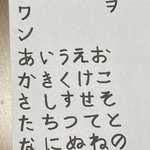 ワ ヲ
ン
あいうえお
かきくけこ
さしすせそ
たちつてと
なにぬねの